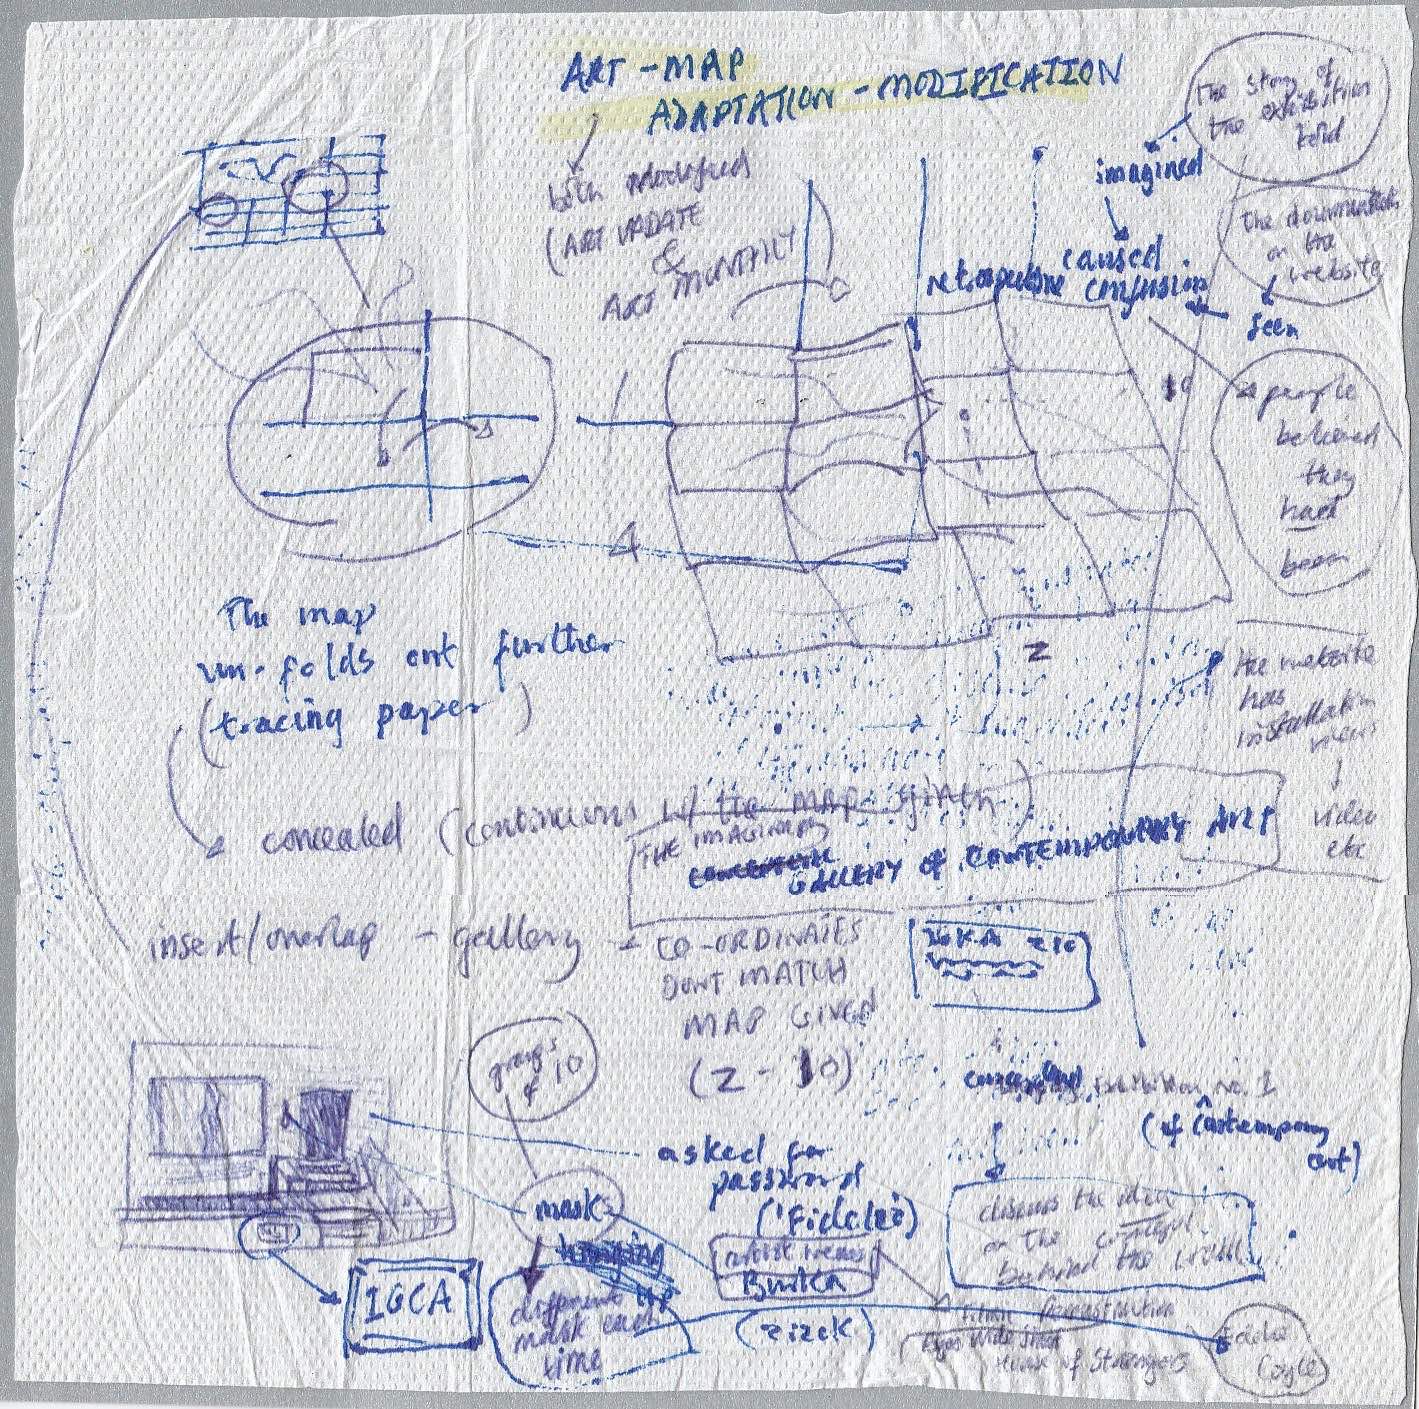 ART - MAP
ADAPTATION - MODIFICATION
both modified
(ART UPDATE
&
ART MONTHLY)
The story of
the exhibition
told
imagined
caused
confusion
The
on the
website
seen
people
believed
they
had
been
10
4
2
The map
un-folds out further
(tracing paper)
the website
has
installation
views
video
etc
concealed (continuous w/ the map given)
THE IMAGINARY
GALLERY OF CONTEMPORARY ART
insert/overlap - gallery - CO-ORDINATES
DONT MATCH
MAP GIVEN
(Z - 10)
IGCA Z10
groups
of 10
Exhibition No. 1
(of contemporary
art)
asked for
password
('Fidelio')
mask
different
mask each
time
artist
Burka
(zizek)
discuss the idea
on the
behind the
IGCA
Eyes Wide Shut
House of Strangers
Coyle